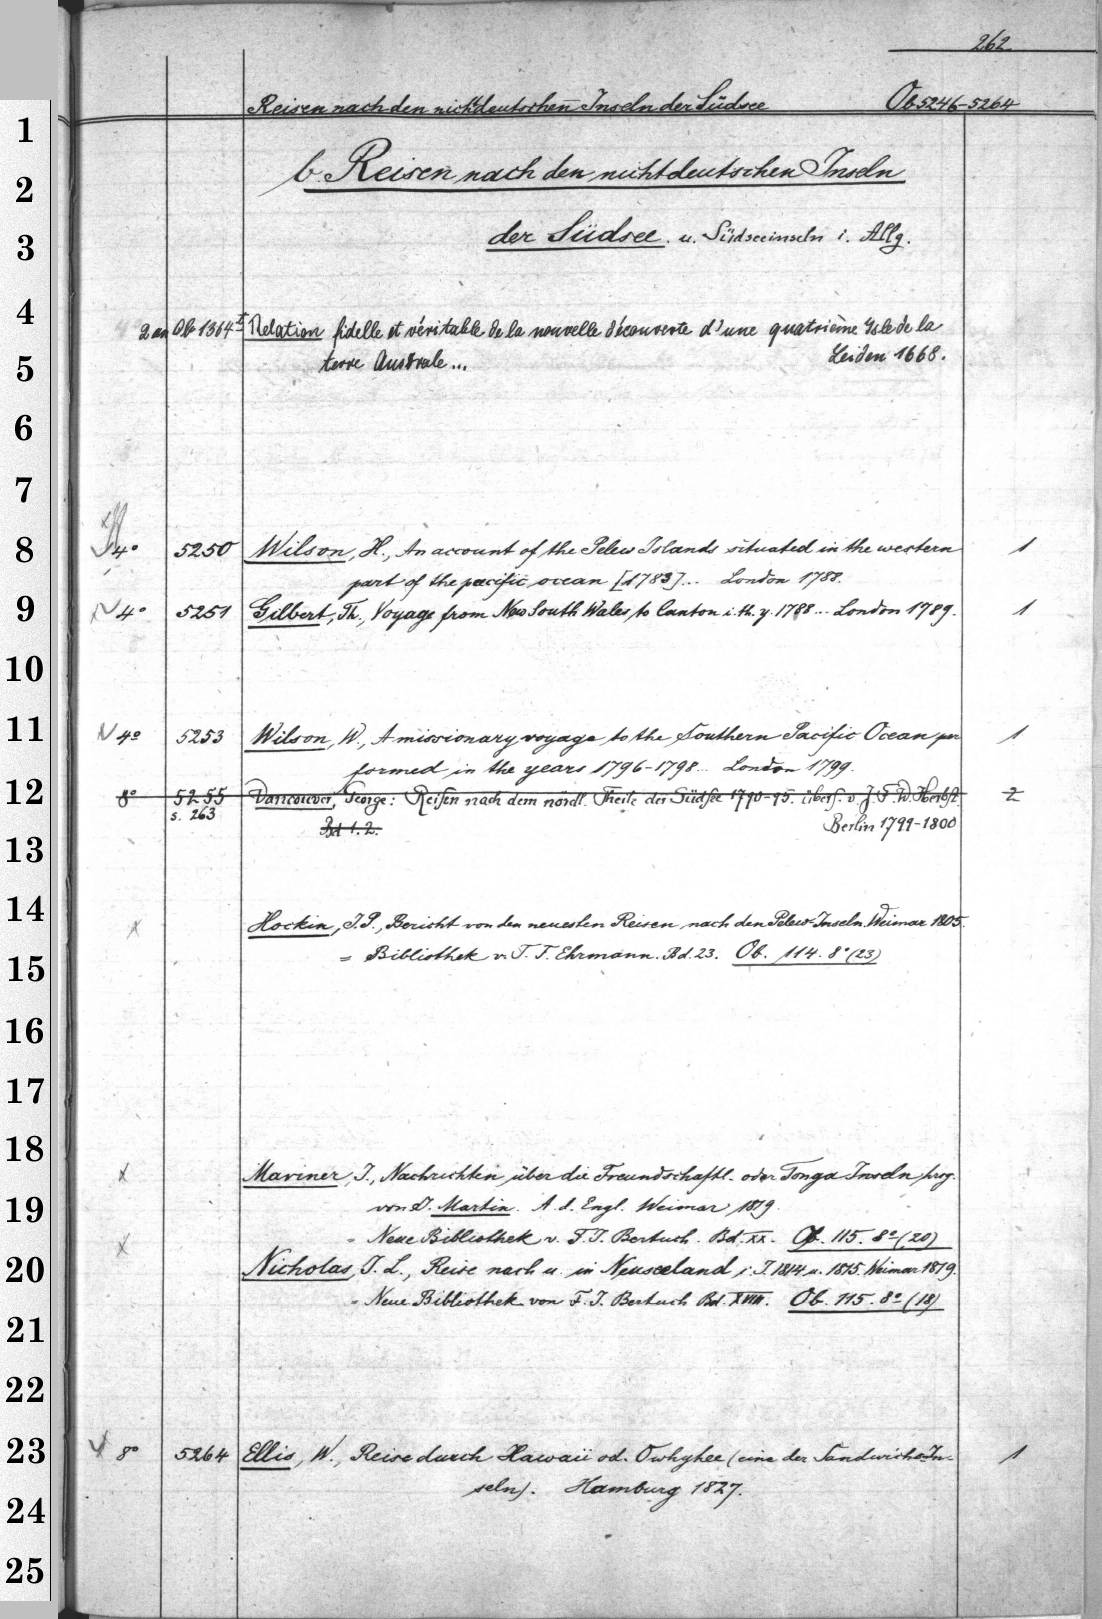 262
Reisen nach den nichtdeutschen Inseln der Südsee Ob 5246-5264
1
b. Reisen nach den nichtdeutschen Inseln
2
der Südsee. u. Südseeinseln i. Allg.
3
4
2 an Ob 1364 I Relation fidelle et véritable de la nouvelle découverte d'une quatrième Isle de la
5
terre Australe... Leiden 1668.
6
7
8
4° 5250 Wilson, H., An account of the Pelew Islands situated in the western 1
part of the pacific ocean [1783]... London 1788.
9
4° 5251 Gilbert, Th., Voyage from New South Wales, to Canton i. th. y. 1788... London 1789. 1
10
11
4° 5253 Wilson, W., A missionary voyage to the Southern Pacific Ocean per 1
formed in the years 1796-1798... London 1799.
12
8° 5255 Vancouver, George: Reisen nach dem nördl. Theile der Südsee 1790-95. übers. v. J. F. W. Herbst. 2
s. 263 Bd 1. 2. Berlin 1799-1800
13
14
Hockin, J. P., Bericht von den neuesten Reisen nach den Pelew-Inseln. Weimar 1805.
15
= Bibliothek v. T. F. Ehrmann. Bd. 23. Ob. 114. 8° (23)
16
17
18
Mariner, J., Nachrichten über die Freundschaftl. oder Tonga Inseln hrsg.
19
von J. Martin. A. d. Engl. Weimar 1819.
= Neue Bibliothek v. F. J. Bertuch. Bd. XX. Ob. 115. 8° (20)
20
Nicholas, J. L., Reise nach u. in Neuseeland i. J. 1814 u. 1815. Weimar 1819.
= Neue Bibliothek von F. J. Bertuch Bd. XVIII. Ob. 115. 8° (18)
21
22
23
8° 5264 Ellis, W., Reise durch Hawaii od. Owhyhee (eine der Sandwichs-In- 1
seln). Hamburg 1827.
24
25